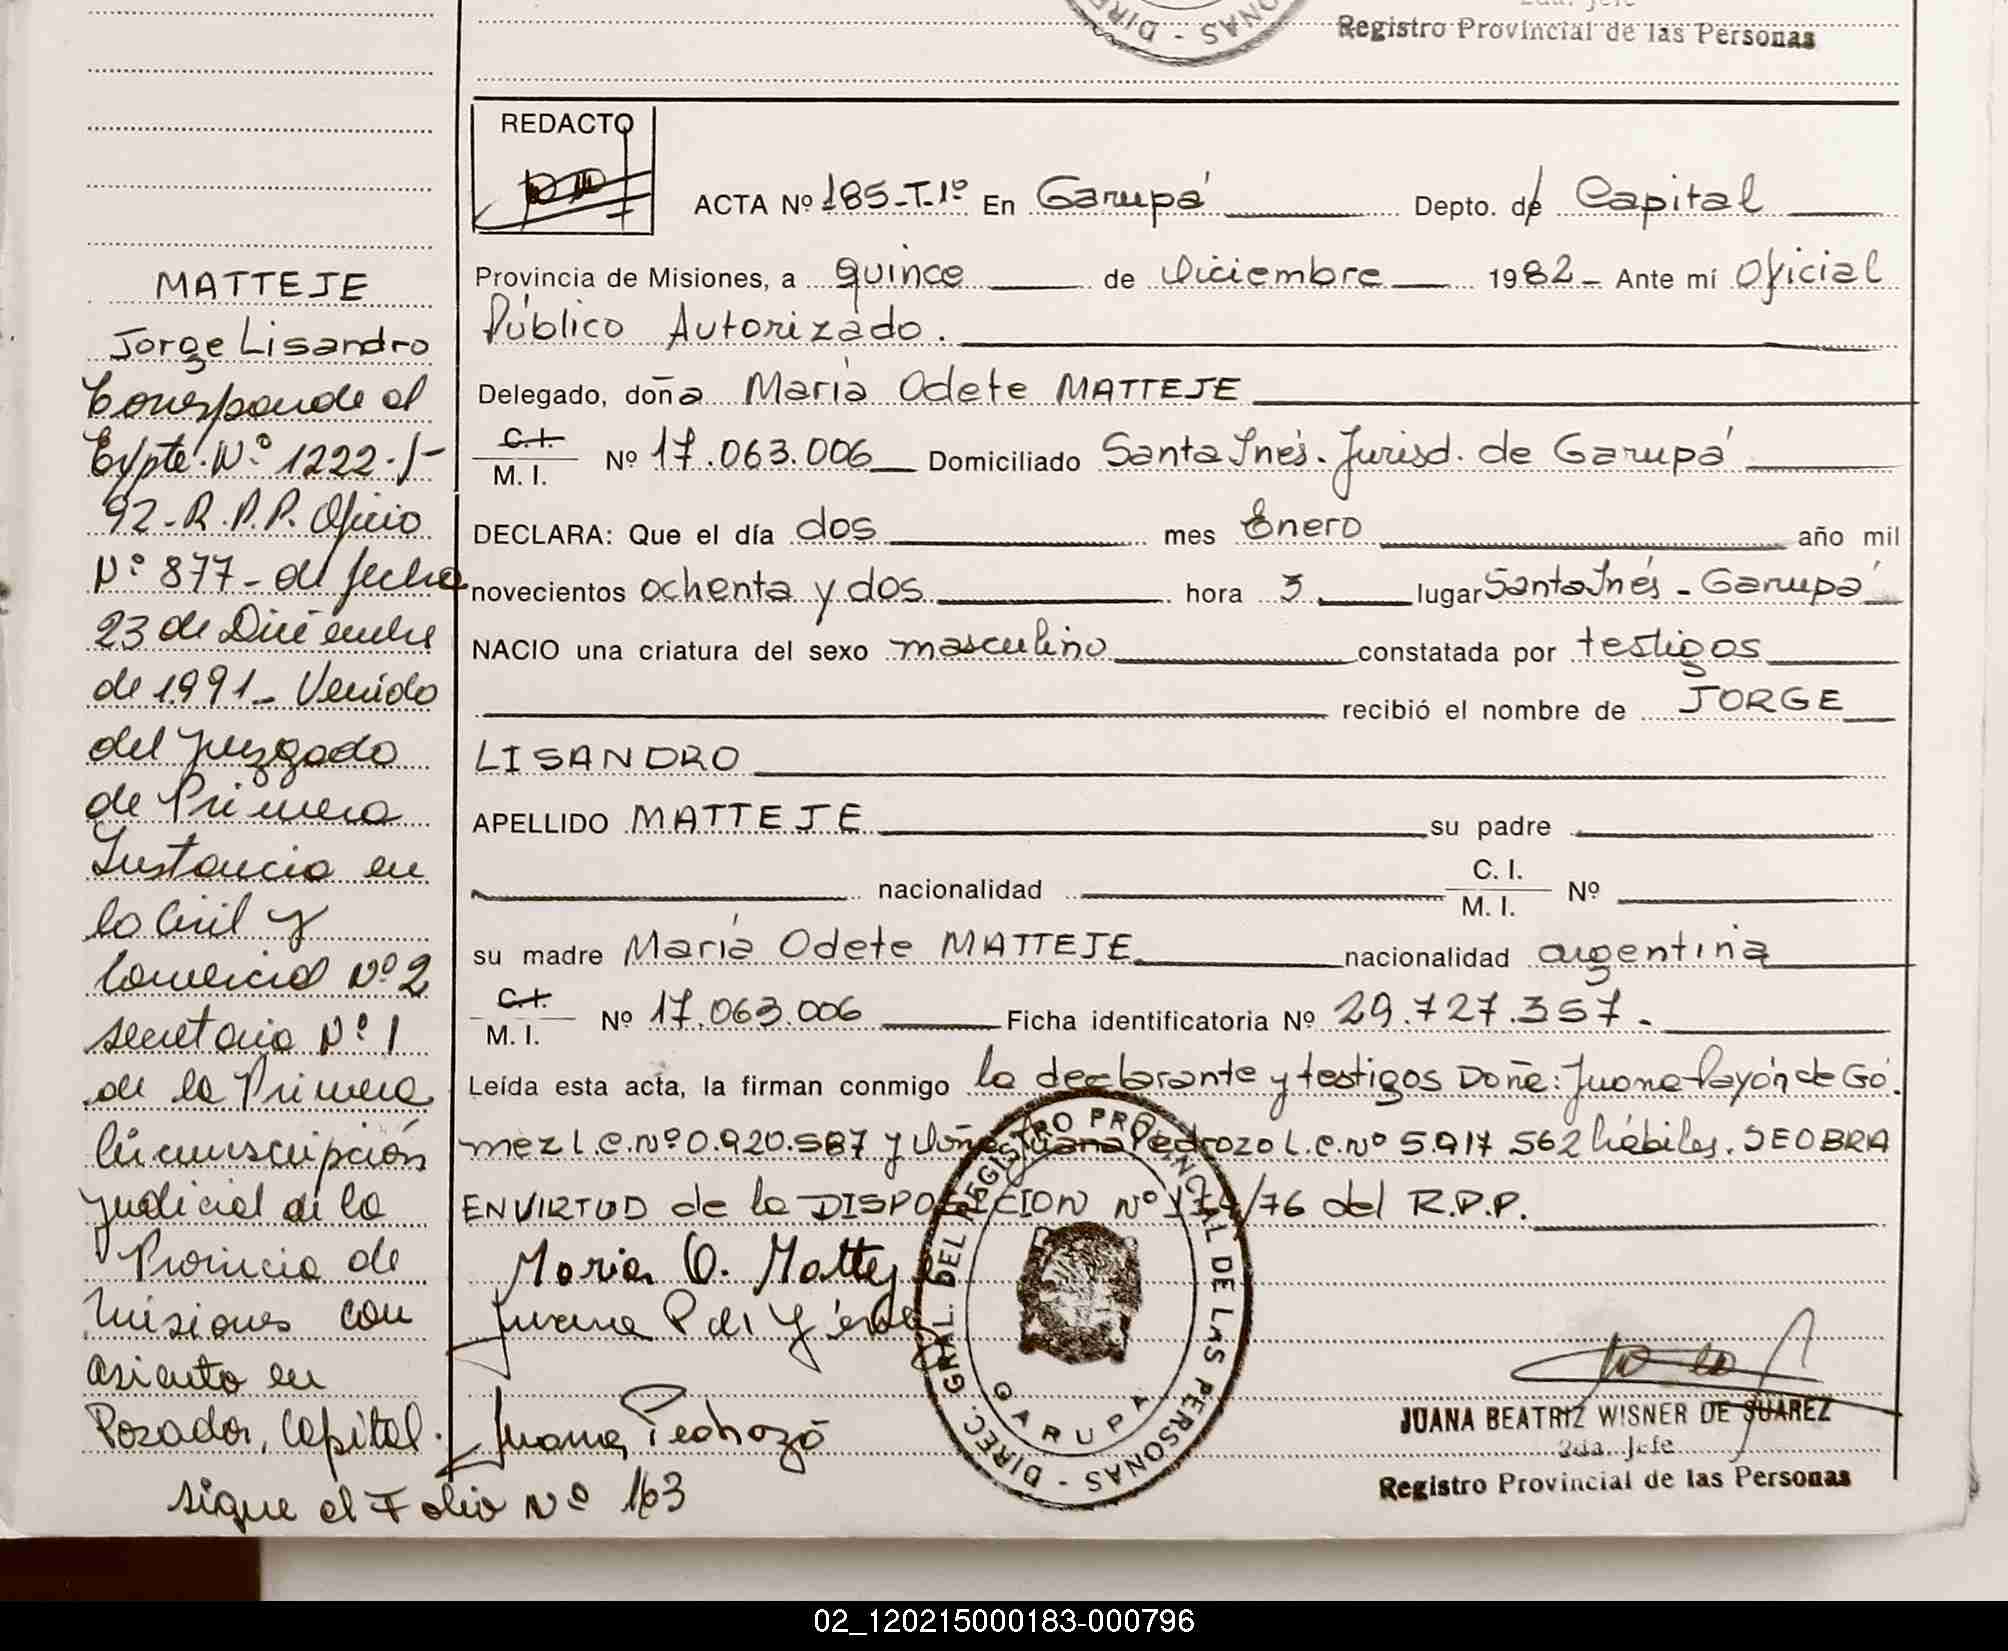 Registro Provincial de las Personas
REDACTO
ACTA Nº 185-T.1º En Garupá Depto. de Capital
Provincia de Misiones, a quince de diciembre 1982 - Ante mí Oficial
Público Autorizado.
Delegado, doña María Odete MATTEJE
C.I.
M. I. Nº 17.063.006 Domiciliado Santa Inés. Jurisd. de Garupá
DECLARA: Que el día dos mes Enero año mil
novecientos ochenta y dos hora 3 lugar Santa Inés - Garupá
NACIO una criatura del sexo masculino constatada por testigos
recibió el nombre de JORGE
LISANDRO
APELLIDO MATTEJE su padre
nacionalidad C. I.
M. I. Nº
su madre María Odete MATTEJE nacionalidad argentina
C.I.
M. I. Nº 17.063.006 Ficha identificatoria Nº 29.727.357.-
Leída esta acta, la firman conmigo la declarante y testigos Doña: Juana Payón de Gó
mez L.C. Nº 0.920.587 y doña Juana Pedrozo L.C. Nº 5.917 562 hábiles. SE OBRA
EN VIRTUD de la DISPOSICION Nº /76 del R.P.P.
Maria O. Matteje
Juana P de
Juana Pedrozo
DIREC. GRAL. DEL REGISTRO PROVINCIAL DE LAS PERSONAS -
GARUPA
JUANA BEATRIZ WISNER DE SUAREZ
2da. Jefe
Registro Provincial de las Personas
MATTEJE
Jorge Lisandro
Corresponde al
Expte. Nº 1222.-/-
92-R.P.P. Oficio
Nº 877- de fecha
23 de Diciembre
de 1991- Venido
del Juzgado
de Primera
Instancia en
lo Civil y
Comercial Nº 2
secretaria Nº 1
de la Primera
Circunscripción
Judicial de la
Provincia de
Misiones con
asiento en
Posadas, Capital.
sigue al Folio Nº 163
02_120215000183-000796